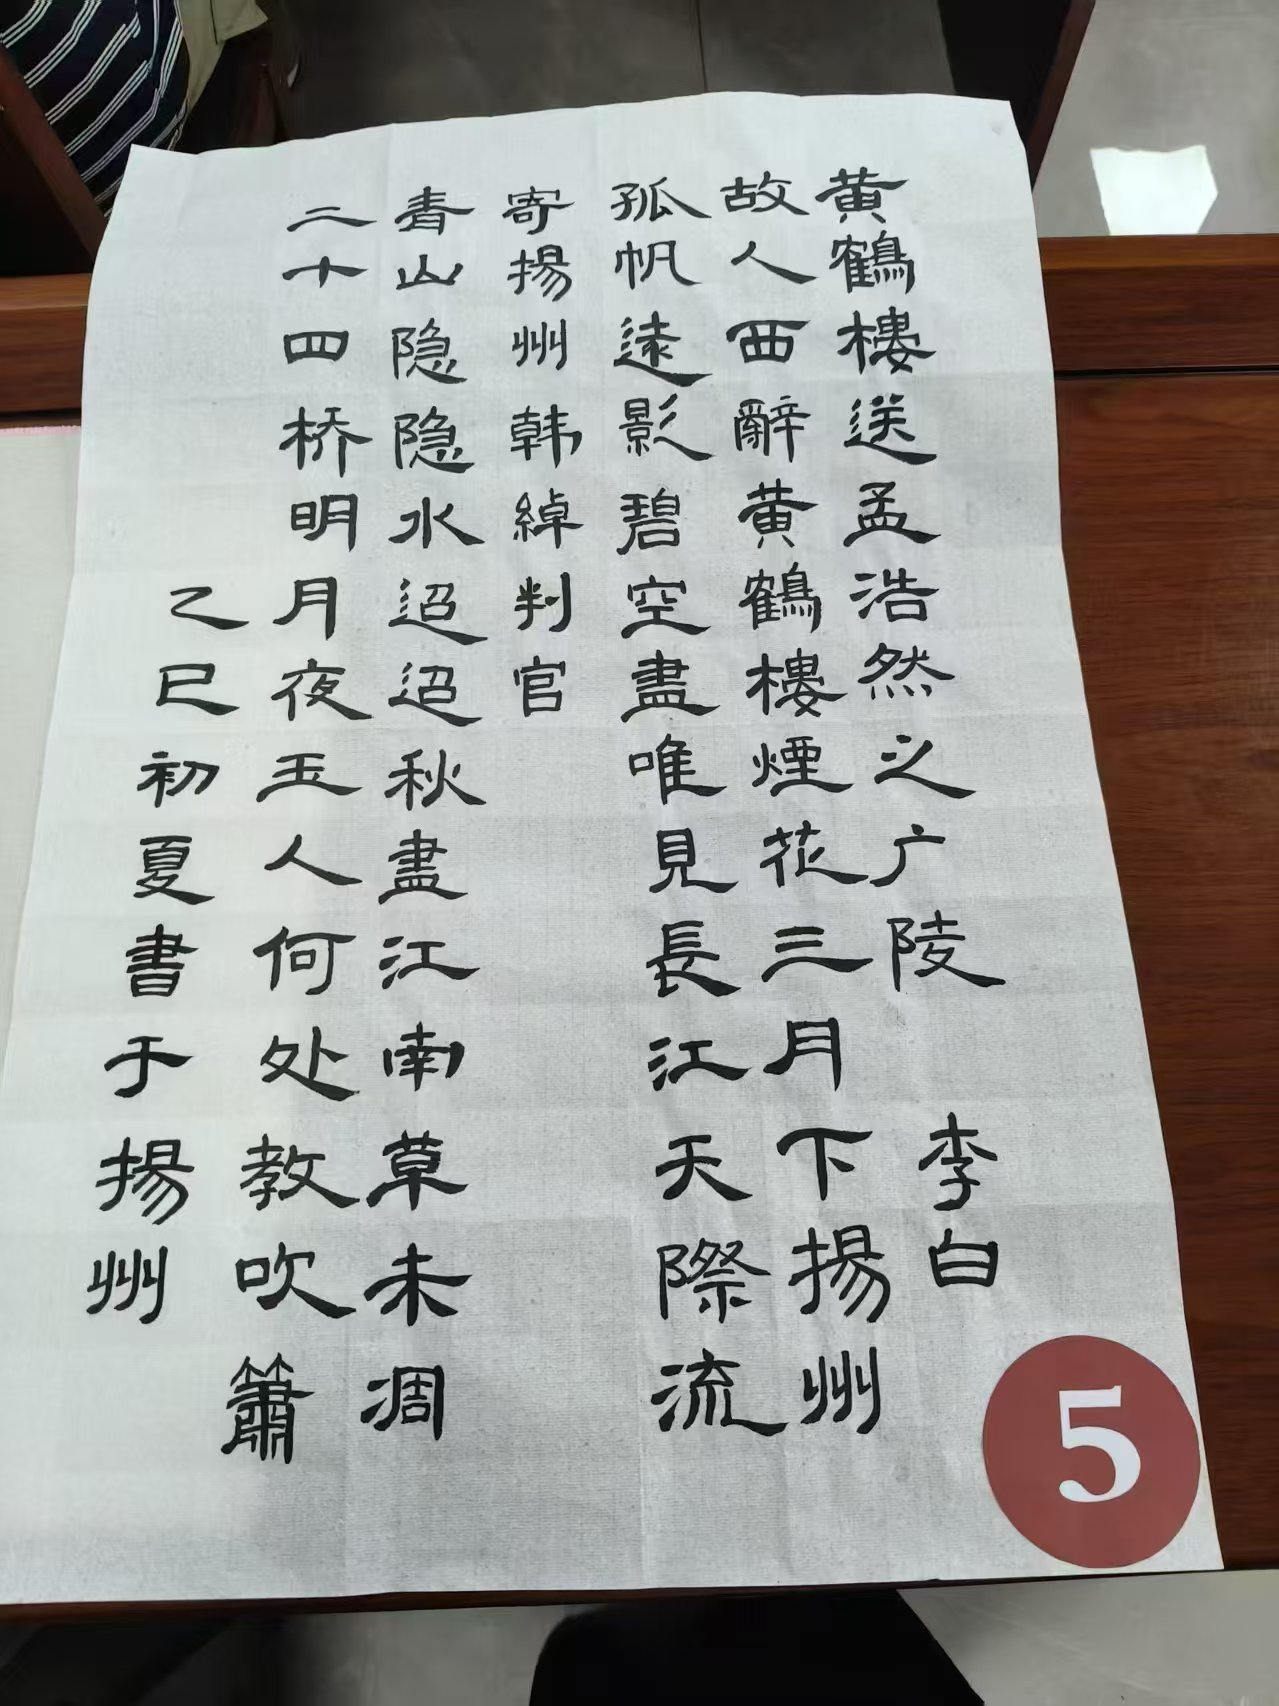 黄鶴樓送孟浩然之广陵 李白
故人西辭黄鶴樓煙花三月下揚州
孤帆遠影碧空盡唯見長江天際流
寄揚州韩綽判官
青山隐隐水迢迢秋盡江南草未凋
二十四桥明月夜玉人何处教吹簫
乙巳初夏書于揚州
5